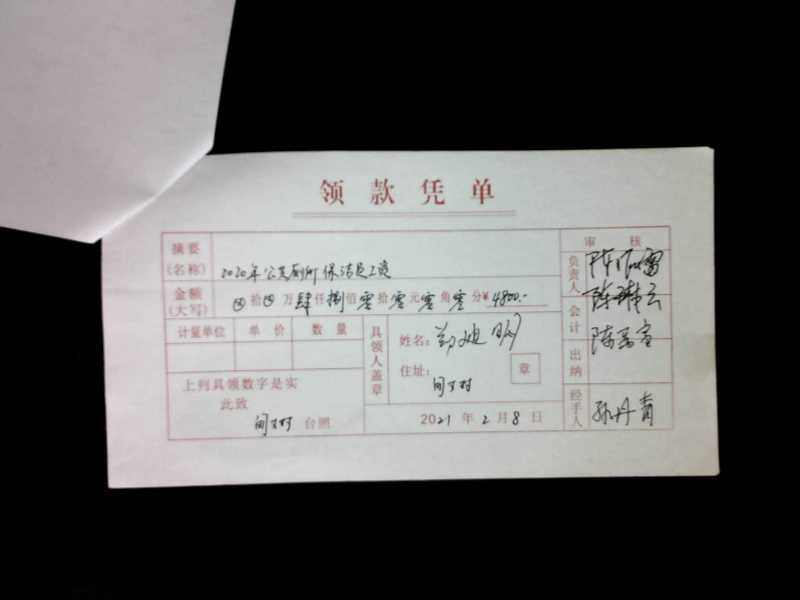 领款凭单
摘要
(名称)
2020年公共厕所保洁员工资
审核
金额
(大写)
⊗拾⊗万肆仟捌佰零拾零元零角零分¥4800.-
负责人
会计
陈
计量单位 单价 数量
具领人盖章
姓名: 郑
住址:
章
出纳
上列具领数字是实
此致
台照
2021年2月8日
经手人
孙丹青